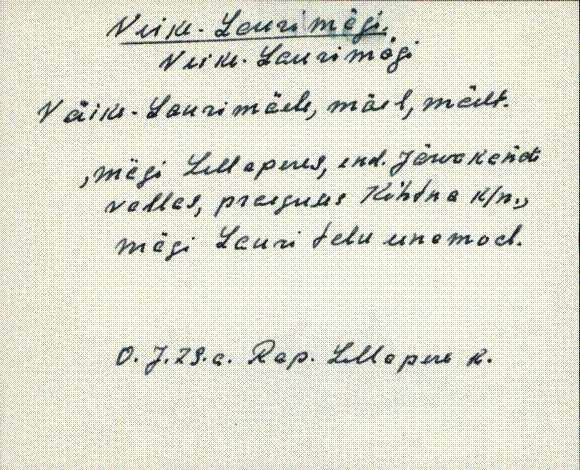 Veike-Laurimägi.
Veike-Laurimägi
Väike-Laurimäele, mäel, mäelt.
, mägi Lellaperes, end. Järvakandi
vallas, praeguses Kihtna k/n.,
mägi Lauri talu unamaal.
O. J. 29.a. Rap. Lellapere k.